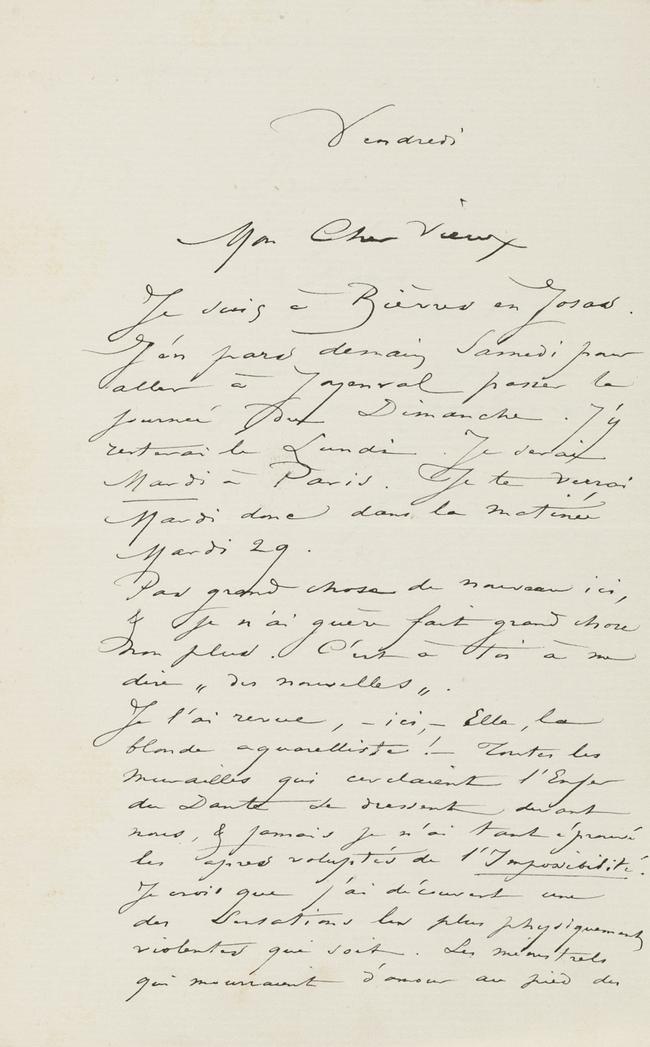 Vendredi
Mon Cher Vieux
Je suis à Bièvres en Josas.
J'en pars demain Samedi pour
aller à Joyenval passer la
journée du Dimanche. J'y
resterai le Lundi. Je serai
Mardi à Paris. Je te verrai
Mardi donc dans la matinée
Mardi 29.
Pas grand chose de nouveau ici,
& je n'ai guère fait grand chose
non plus. C'est à toi à me
dire „ des nouvelles „.
Je l'ai revue, – ici, – Elle, la
blonde aquarelliste ! – Toutes les
murailles qui cerclaient l'Enfer
du Dante se dressent devant
nous, & jamais je n'ai tant éprouvé
les âpres voluptés de l'Impossibilité.
Je crois que j'ai découvert une
des sensations les plus physiquement
violentes qui soit. Les ménestrels
qui mouraient d'amour au pied des